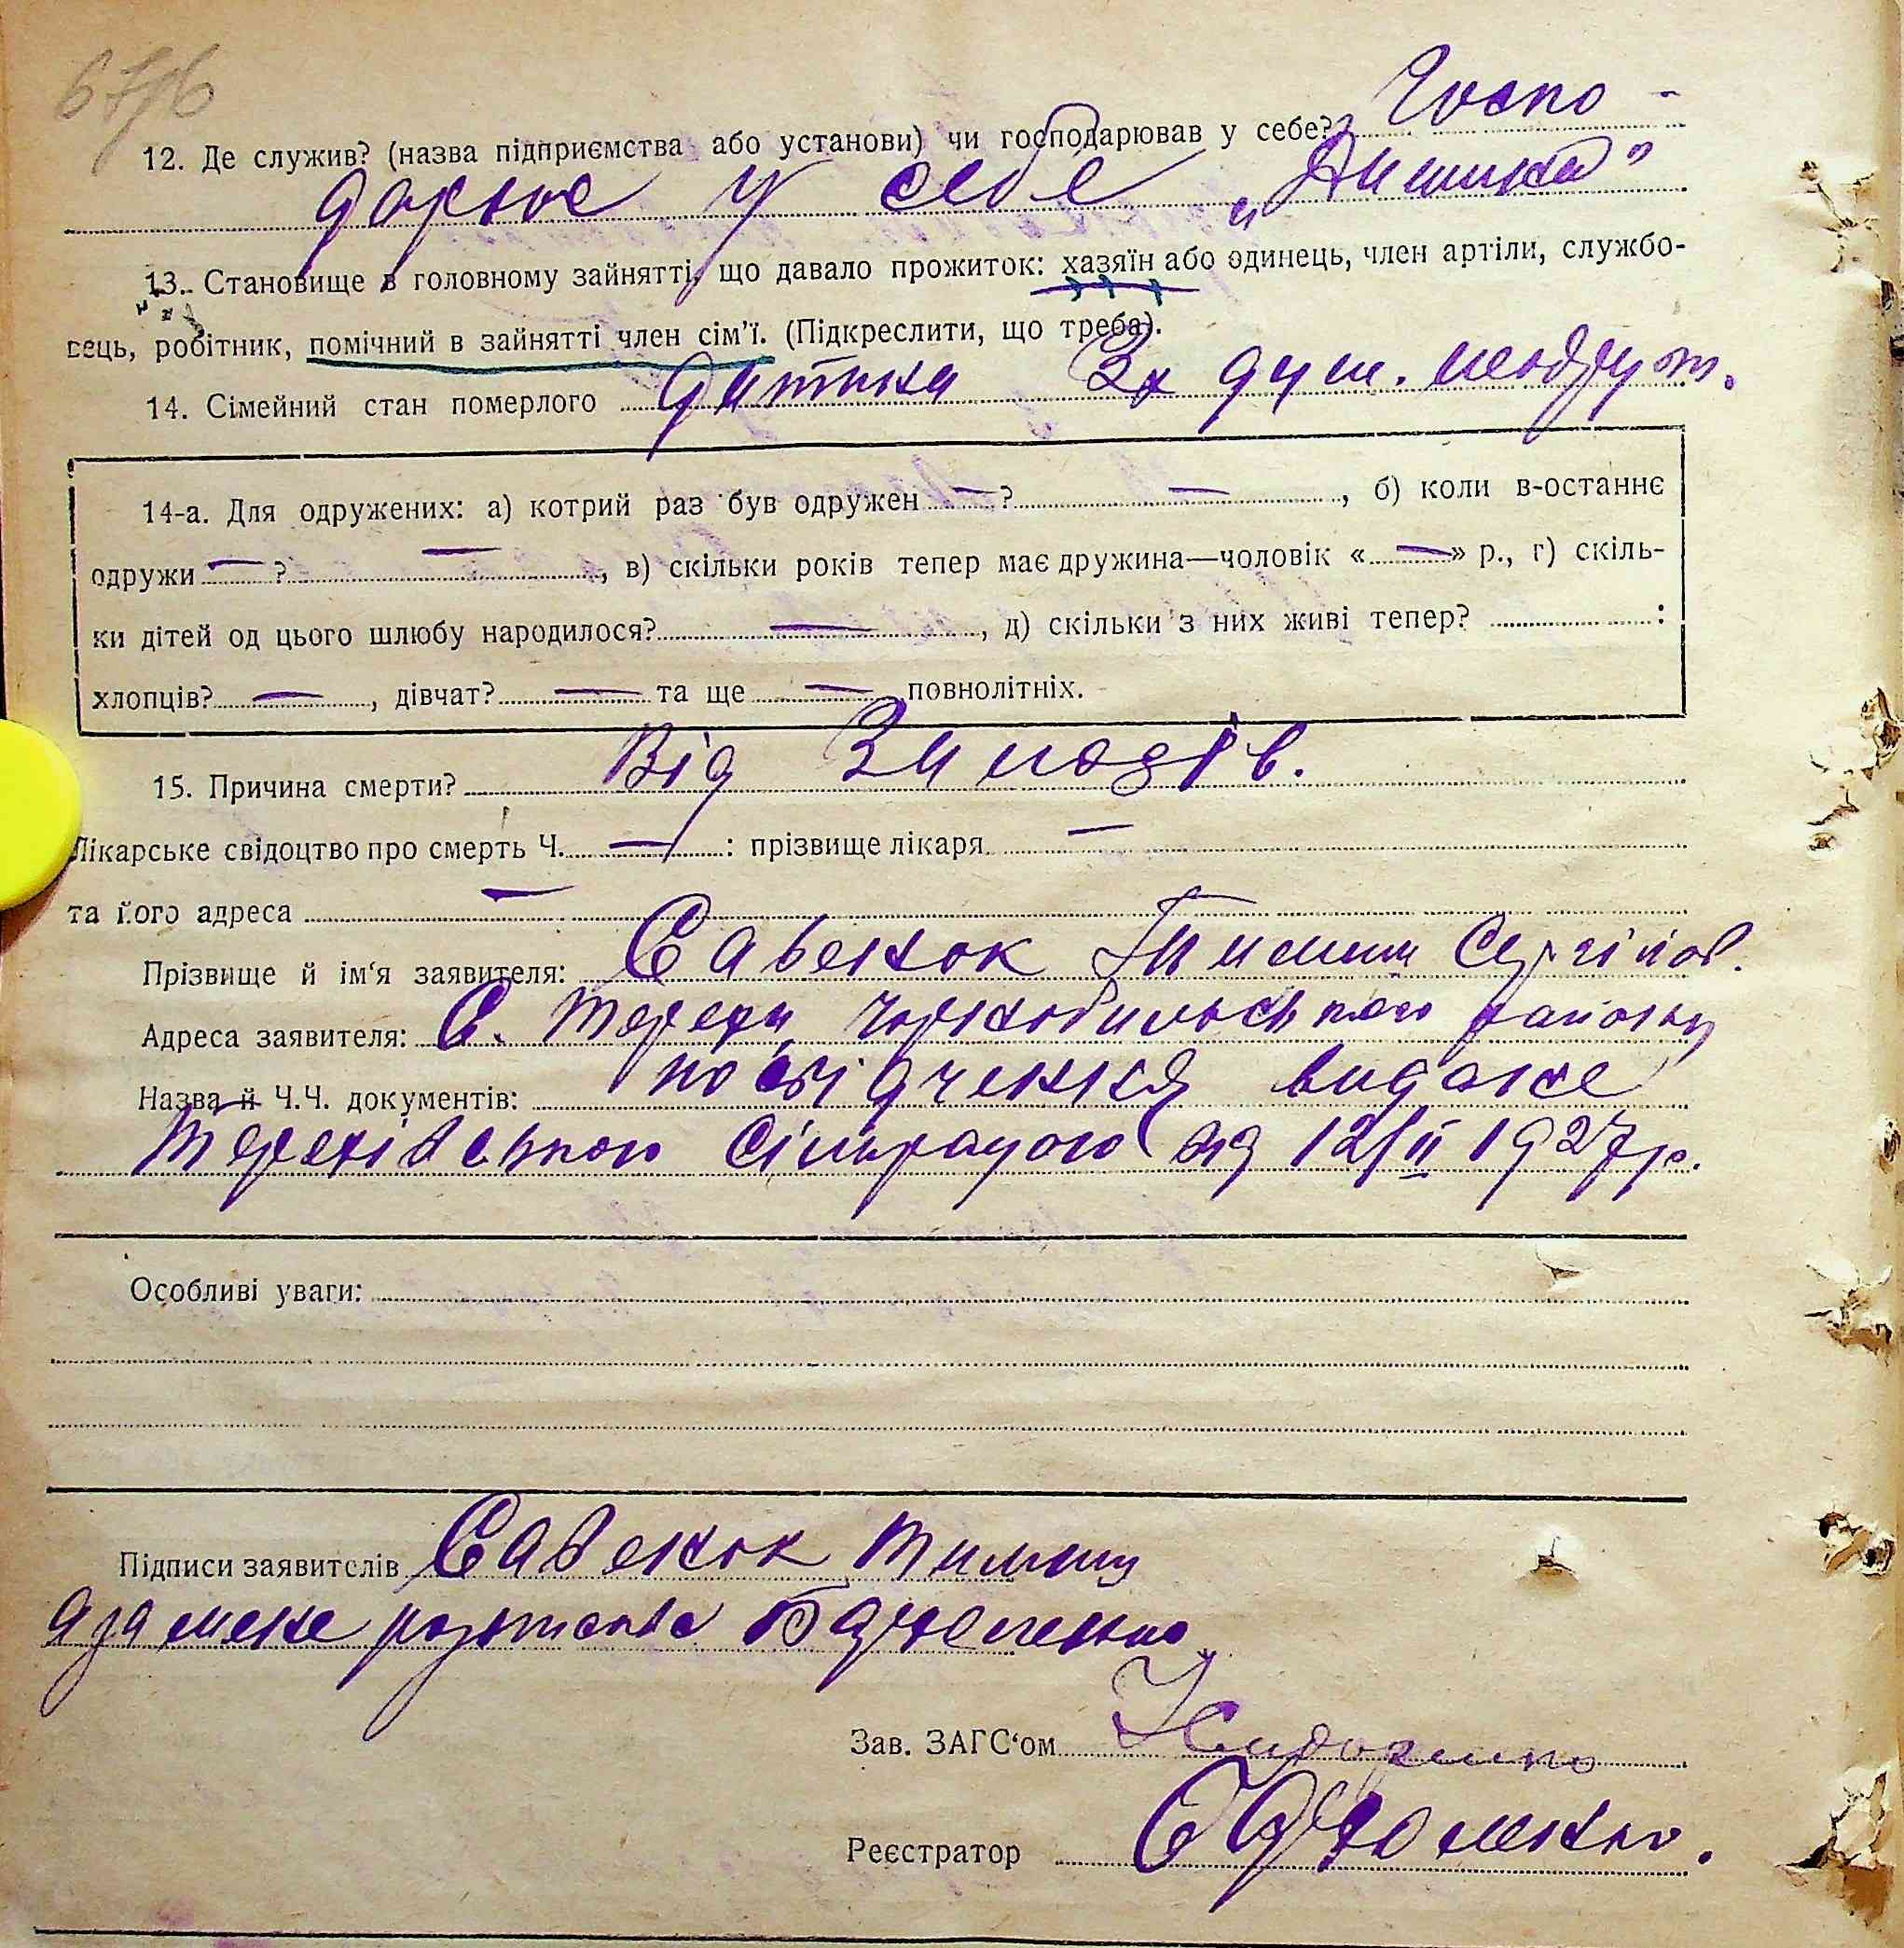 12. Де служив? (назва підприємства або установи) чи господарював у себе? Госпо-
дарює у себе
13. Становище в головному зайнятті, що давало прожиток: хазяїн або одинець, член артіли, службо-
вець, робітник, помічний в зайнятті член сім'ї. (Підкреслити, що треба).
14. Сімейний стан померлого дитина 3х
14-а. Для одружених: а) котрий раз був одружен — ? —, б) коли в-останнє
одружи — ? —, в) скільки років тепер має дружина—чоловік «—» р., г) скіль-
ки дітей од цього шлюбу народилося? —, д) скільки з них живі тепер? :
хлопців? —, дівчат? — та ще — повнолітніх.
15. Причина смерти? Від
Лікарське свідоцтво про смерть Ч. — : прізвище лікаря —
та його адреса —
Прізвище й ім'я заявителя: Савенок Тимиш Сергійов.
Адреса заявителя: С. Терехи Чорнобильського району
Назва й Ч.Ч. документів: посвідчення видане
Терехівською Сільрадою від 12/II 1927 р.
Особливі уваги:
Підписи заявителів Савенок Тимиш
а за мене розписався
Зав. ЗАГС'ом
Реєстратор